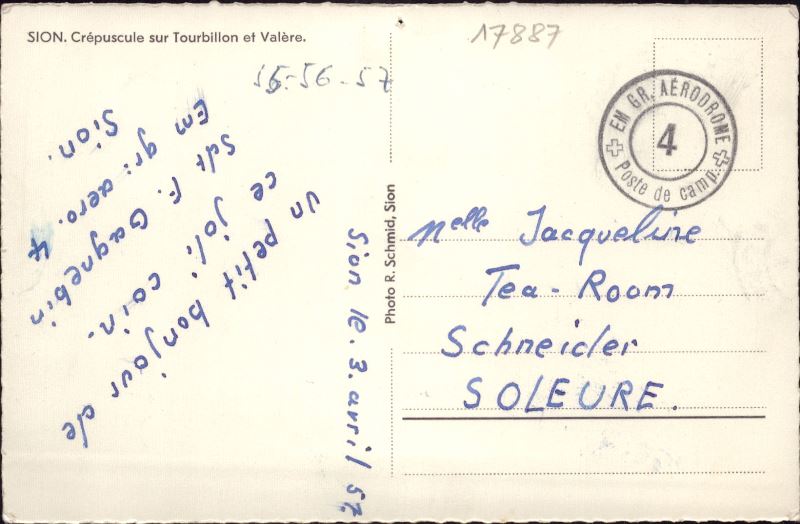 SION. Crépuscule sur Tourbillon et Valère.
17887
55-56-57
EM GR. AÉRODROME
4
Poste de camp.
Sion le. 3. avril 57.
un petit bonjour de
ce joli coin.
Sdt F. Gagnebin
Em gr: aero. 4
Sion.
Photo R. Schmid, Sion
Melle Jacqueline
Tea-Room
Schneider
SOLEURE.